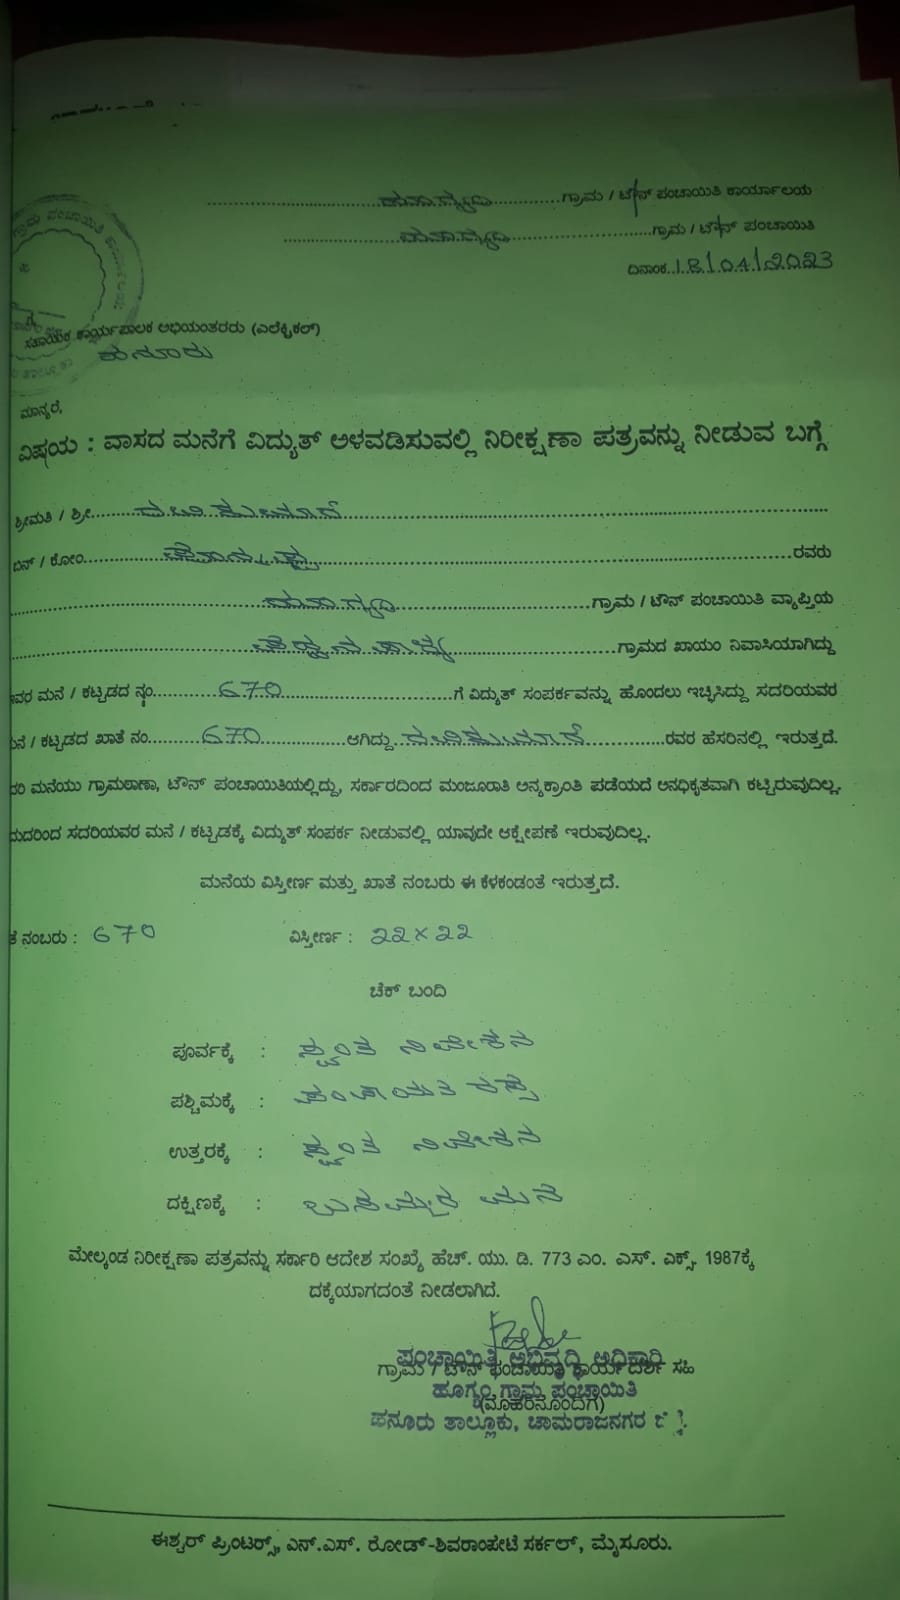 ಗ್ರಾಮ / ಟೌನ್ ಪಂಚಾಯಿತಿ ಕಾರ್ಯಾಲಯ
ಗ್ರಾಮ / ಟೌನ್ ಪಂಚಾಯಿತಿ
ದಿನಾಂಕ..18/04/2023
ಸಹಾಯಕ ಕಾರ್ಯಪಾಲಕ ಅಭಿಯಂತರರು (ಎಲೆಕ್ಟ್ರಿಕಲ್)
ಹನೂರು
ಮಾನ್ಯರೆ,
ವಿಷಯ : ವಾಸದ ಮನೆಗೆ ವಿದ್ಯುತ್ ಅಳವಡಿಸುವಲ್ಲಿ ನಿರೀಕ್ಷಣಾ ಪತ್ರವನ್ನು ನೀಡುವ ಬಗ್ಗೆ
ಶ್ರೀಮತಿ / ಶ್ರೀ
ಬಿನ್ / ಕೋಂ ರವರು
ಗ್ರಾಮ / ಟೌನ್ ಪಂಚಾಯಿತಿ ವ್ಯಾಪ್ತಿಯ
ಗ್ರಾಮದ ಖಾಯಂ ನಿವಾಸಿಯಾಗಿದ್ದು
ಮನೆ / ಕಟ್ಟಡದ ನಂ 670 ಗೆ ವಿದ್ಯುತ್ ಸಂಪರ್ಕವನ್ನು ಹೊಂದಲು ಇಚ್ಛಿಸಿದ್ದು ಸದರಿಯವರ
/ ಕಟ್ಟಡದ ಖಾತೆ ನಂ 670 ಆಗಿದ್ದು ರವರ ಹೆಸರಿನಲ್ಲಿ ಇರುತ್ತದೆ.
ಮನೆಯು ಗ್ರಾಮಠಾಣಾ, ಟೌನ್ ಪಂಚಾಯಿತಿಯಲ್ಲಿದ್ದು, ಸರ್ಕಾರದಿಂದ ಮಂಜೂರಾತಿ ಅನ್ಯಕ್ರಾಂತಿ ಪಡೆಯದೆ ಅನಧಿಕೃತವಾಗಿ ಕಟ್ಟಿರುವುದಿಲ್ಲ.
ಸದರಿಯವರ ಮನೆ / ಕಟ್ಟಡಕ್ಕೆ ವಿದ್ಯುತ್ ಸಂಪರ್ಕ ನೀಡುವಲ್ಲಿ ಯಾವುದೇ ಆಕ್ಷೇಪಣೆ ಇರುವುದಿಲ್ಲ.
ಮನೆಯ ವಿಸ್ತೀರ್ಣ ಮತ್ತು ಖಾತೆ ನಂಬರು ಈ ಕೆಳಕಂಡಂತೆ ಇರುತ್ತದೆ.
ನಂಬರು : 670 ವಿಸ್ತೀರ್ಣ : 22×22
ಚೆಕ್ ಬಂದಿ
ಪೂರ್ವಕ್ಕೆ : ಸ್ವಂತ ನಿವೇಶನ
ಪಶ್ಚಿಮಕ್ಕೆ : ಪಂಚಾಯತಿ ರಸ್ತೆ
ಉತ್ತರಕ್ಕೆ : ಸ್ವಂತ ನಿವೇಶನ
ದಕ್ಷಿಣಕ್ಕೆ : ಮನೆ
ಮೇಲ್ಕಂಡ ನಿರೀಕ್ಷಣಾ ಪತ್ರವನ್ನು ಸರ್ಕಾರಿ ಆದೇಶ ಸಂಖ್ಯೆ ಹೆಚ್. ಯು. ಡಿ. 773 ಎಂ. ಎಸ್. ಎಕ್ಸ್. 1987ಕ್ಕೆ
ದಕ್ಕೆಯಾಗದಂತೆ ನೀಡಲಾಗಿದೆ.
ಪಂಚಾಯಿತಿ ಅಭಿವೃದ್ಧಿ ಅಧಿಕಾರಿ
ಗ್ರಾಮ / ಟೌನ್ ಪಂಚಾಯಿತಿ ಕಾರ್ಯದರ್ಶಿ ಸಹಿ
ಹೂಗ್ಯಂ ಗ್ರಾಮ ಪಂಚಾಯಿತಿ
(ಮೊಹರಿನೊಂದಿಗೆ)
ಹನೂರು ತಾಲ್ಲೂಕು, ಚಾಮರಾಜನಗರ
ಈಶ್ವರ್ ಪ್ರಿಂಟರ್ಸ್, ಎನ್.ಎಸ್. ರೋಡ್-ಶಿವರಾಂಪೇಟೆ ಸರ್ಕಲ್, ಮೈಸೂರು.